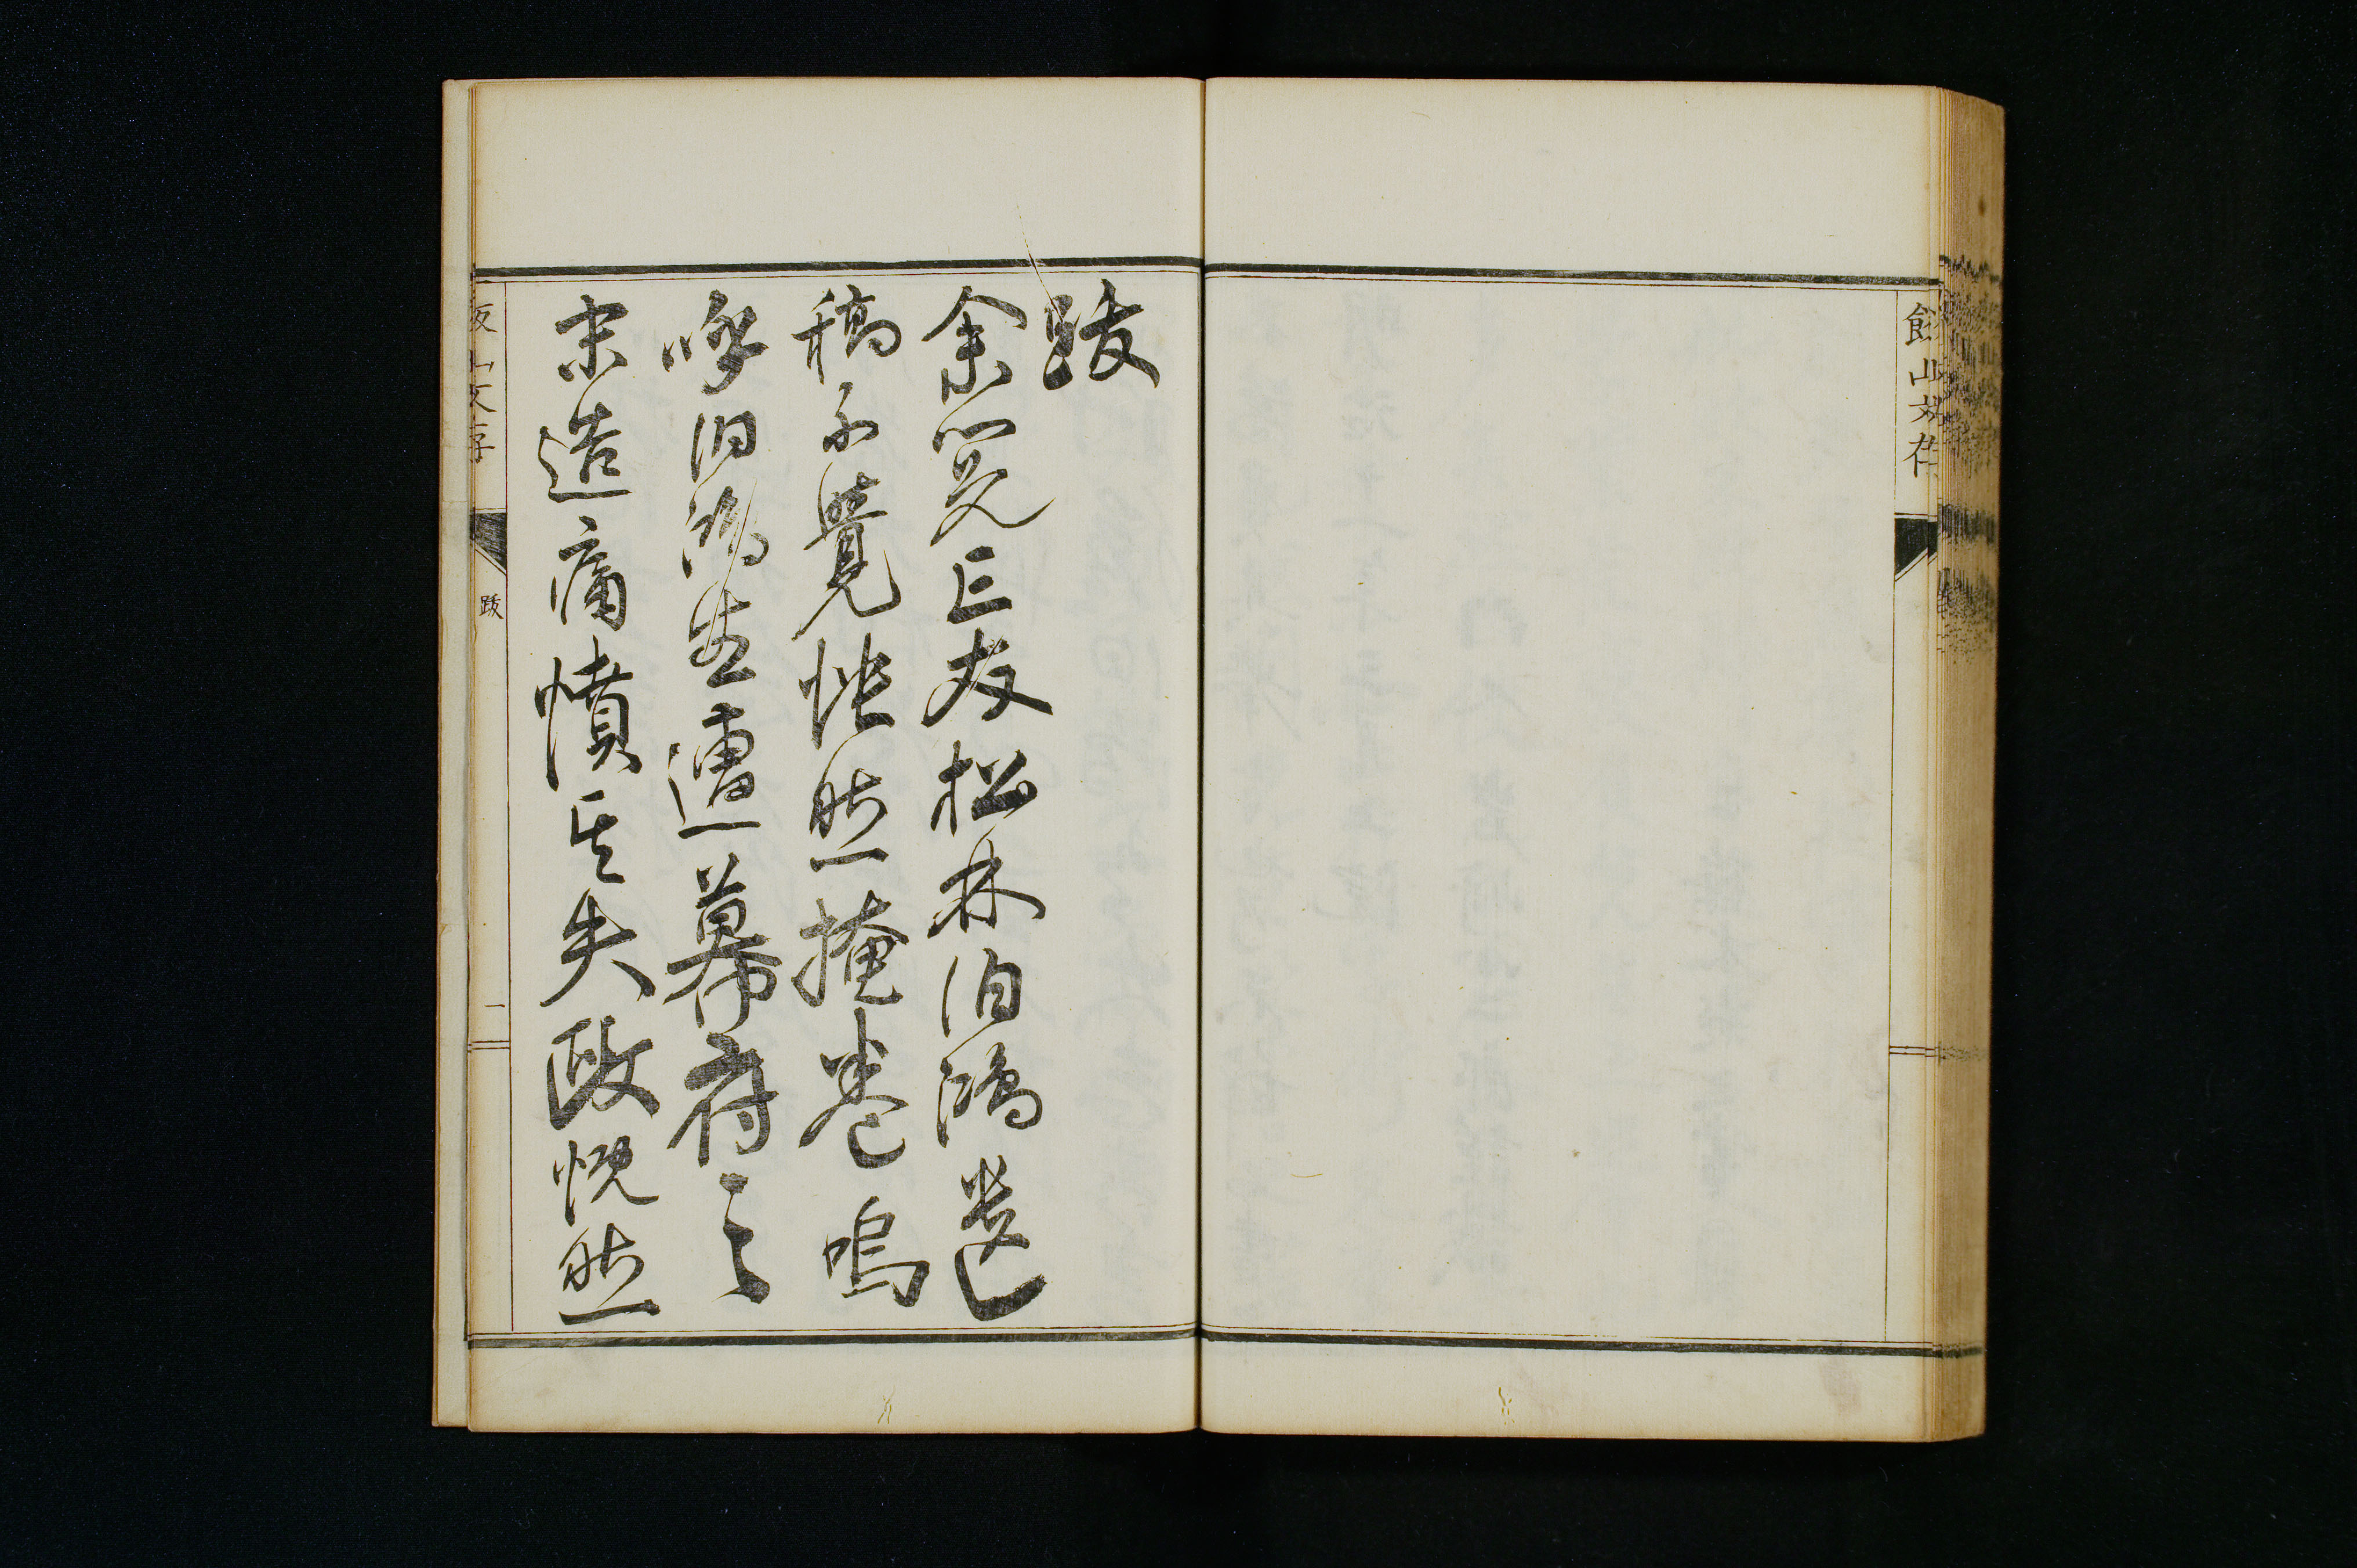 飯山文存
跋
余覧亡友松林伯鴻遺
稿不覺悵然掩巻嗚
呼伯鴻生遭幕府之
末造痛憤其失政慨然
飯山文存
跋
一